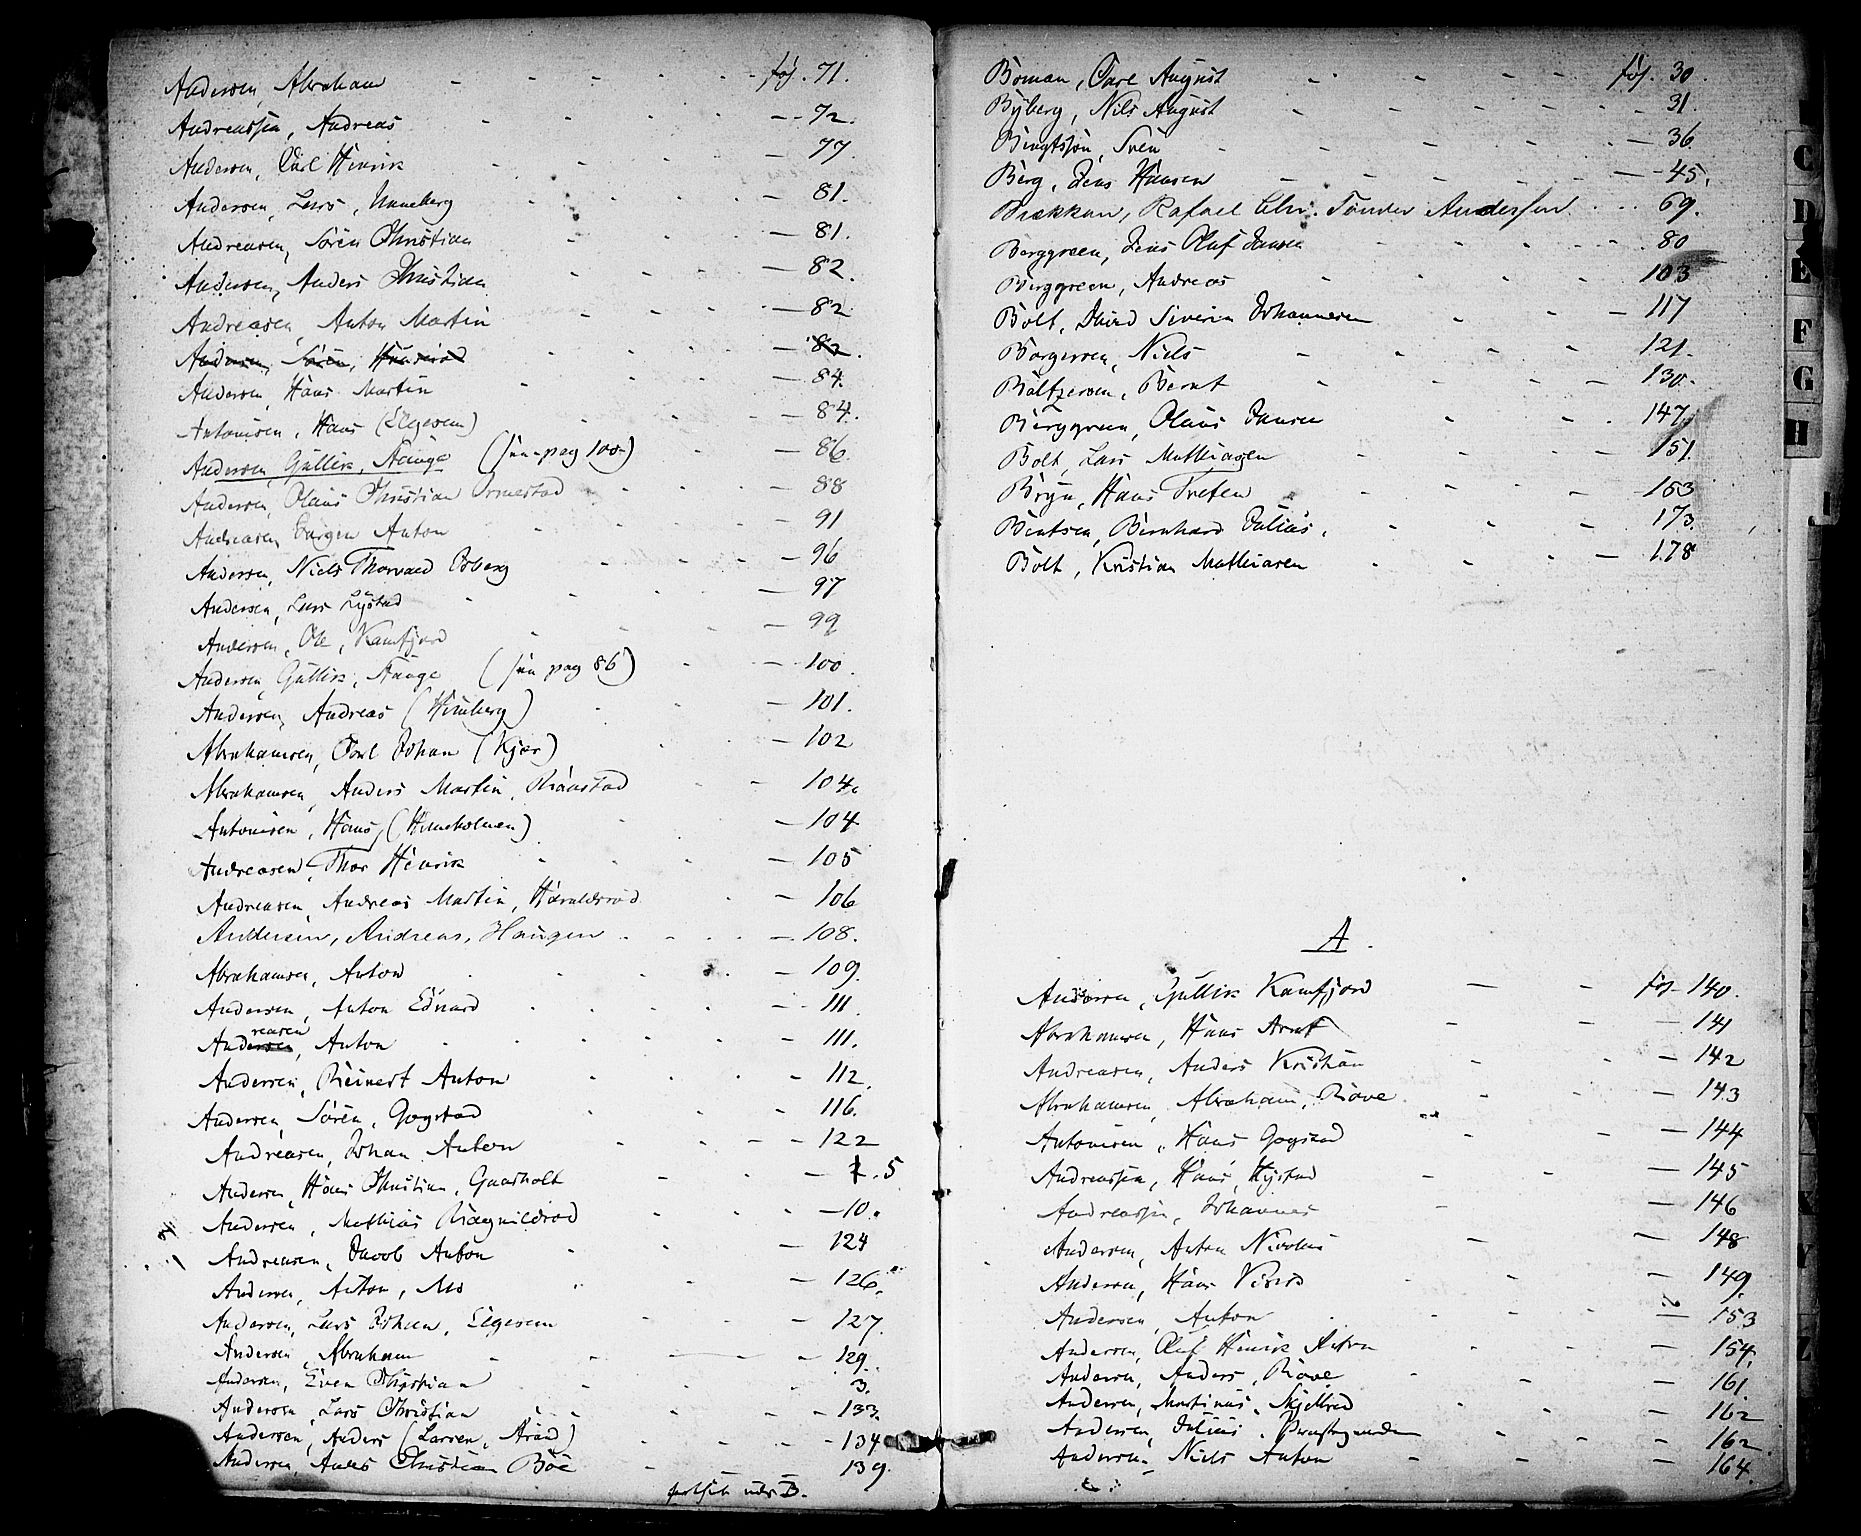 Andersen, Abraham - - - - - - føj. 71.
Andreassen, Andreas - - - - - 72.
Andersen, Carl Henrik - - - - 77.
Andersen, Lars, Unneberg - - - - 81.
Andreasen, Sören Christian - - - - 81.
Andersen, Anders Christian - - - - 82.
Andreasen, Anton Martin - - - - 82
Andersen, Sören, - - - - 82.
Andersen, Hans Martin - - - - 84.
Antonisen, Hans (Elgesem) - - - - 84.
Andersen, Gullik, Hauge (see pag 100) - - - 86.
Andersen, Olaus Christian Ormestad - - - 88
Andreasen, Jörgen Anton - - - - 91
Andersen, Niels Thorvald Osberg - - - - 96
Andersen, Lars Lystad - - - - 97
Andersen, Ole, Kamfjord - - - - 99
Andersen, Gullik, Hauge (see pag 86) - - 100.
Andersen, Andreas (Himberg) - - - 101.
Abrahamsen, Carl Johan (Kjær) - - 102
Abrahamsen, Anders Martin, Raastad - - 104.
Antonisen, Hans, (Himeholmen) - - 104
Andreasen, Thor Henrik - - - - 105
Andreasen, Andreas Martin, Haraldsrød - - 106
Andersen, Andreas, Haugen - - - - 108.
Abrahamsen, Anton - - - - 109.
Andersen, Anton Edvard - - - - 111.
reasen
Andersen, Anton - - - - - 111.
Andersen, Reinert Anton - - - - 112.
Andersen, Sören, Gogstad - - - 116.
Andreasen, Johan Anton - - - - 122
Andersen, Hans Christian, Gaasholt - - - 5
Andersen, Mathias Ragnildrød - - - - 10.
Andreasen, Jacob Anton - - - 124
Andersen, Anton, Aas - - - 126.
Andersen, Lars Johan, Elgesem - - - 127.
Andersen, Abraham - - - - 129.
Andersen, Even Christian - - - 3.
Andersen, Lars Christian - - - - 133.
Andersen, Anders (Larsen, Arød) - - - - 134
Andersen, Anders Christian Böe - - - - 139.
fortsat under B.
Boman, Carl August - - - føj. 30.
Byberg, Nils August - - - - 31
Bengtsson, Sven - - - - 36
Berg, Jens Hansen - - - - 45.
Brekkan, Rafael Chr. Tander Anderssen - - 69.
Berggreen, Jens Oluf Jansen - - - - 80
Berggreen, Andreas - - - - 103
Bolt, David Severin Johannesen - - - 117
Borgersen, Niels - - - - 121.
Baltzersen, Bernt - - - - 130.
Berggreen, Olaus Jansen - - - 147.
Bolt, Lars Mathiasen - - - - 151.
Bryn, Hans Trefen - - - - 153
Bentsen, Bernhard Julius. - - - 173.
Bolt, Kristian Mathiasen - - - - 178
A.
Andersen, Gullik Kamfjord - - føj. 140.
Abrahamsen, Hans Arnt - - - 141
Andreasen, Anders Kristian - - - 142
Abrahamsen, Abraham, Rove - - - 143
Antonisen, Hans Gogstad - - - 144
Andreassen, Hans, Hystad - - 145
Andreassen, Johannes - - 146
Andersen, Anton Nicolai - - 148
Andersen, Hans Virød - - - 149.
Andersen, Anton - - - - 153
Andersen, Oluf Henrik Anton - - - 154.
Andersen, Anders, Rove - - - 161.
Andersen, Martinus, Skjellrød - - - 162
Andersen, Julius, - - - 162.
Andersen, Niels Anton - - - 164.
C
D
E
F
G
H